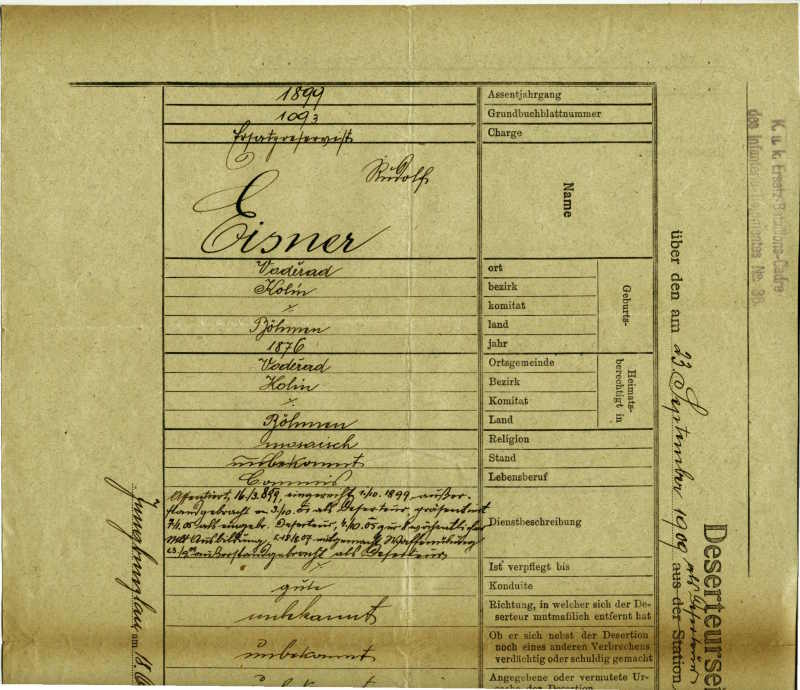 K. u. k. Ersatz-Bataillons-Cadre
des Infanterie-Regimentes No 36.
Deserteurse
über den am 23. September 1909 als Deserteur aus der Station
Assentjahrgang 1899
Grundbuchblattnummer 1093
Charge Ersatzreservist
Name Rudolf
Eisner
Geburts-
ort Voděrad
bezirk Kolin
komitat ⁒
land Böhmen
jahr 1876
Heimats-
berechtigt in
Ortsgemeinde Voděrad
Bezirk Kolin
Komitat ⁒
Land Böhmen
Religion mosaisch
Stand unbekannt
Lebensberuf Commis
Dienstbeschreibung
Assentiert 16./3. 899, eingereiht 1/10. 1899 außer-
stand gebracht 3/10. 05 als Deserteur, präsentiert
7/4. 05 als eingebr. Deserteur, 4/10. 05 zur 8 wöchentlicher
milt Ausbildung, mitgemacht Waffenübung
außerstandgebracht als Deserteur
Ist verpflegt bis
Konduite gute
Richtung, in welcher sich der De-
serteur mutmaßlich entfernt hat unbekannt
Ob er sich nebst der Desertion
noch eines anderen Verbrechens
verdächtig oder schuldig gemacht unbekannt
Angegebene oder vermutete Ur-
sache der Desertion
Jungbunzlau am 18.